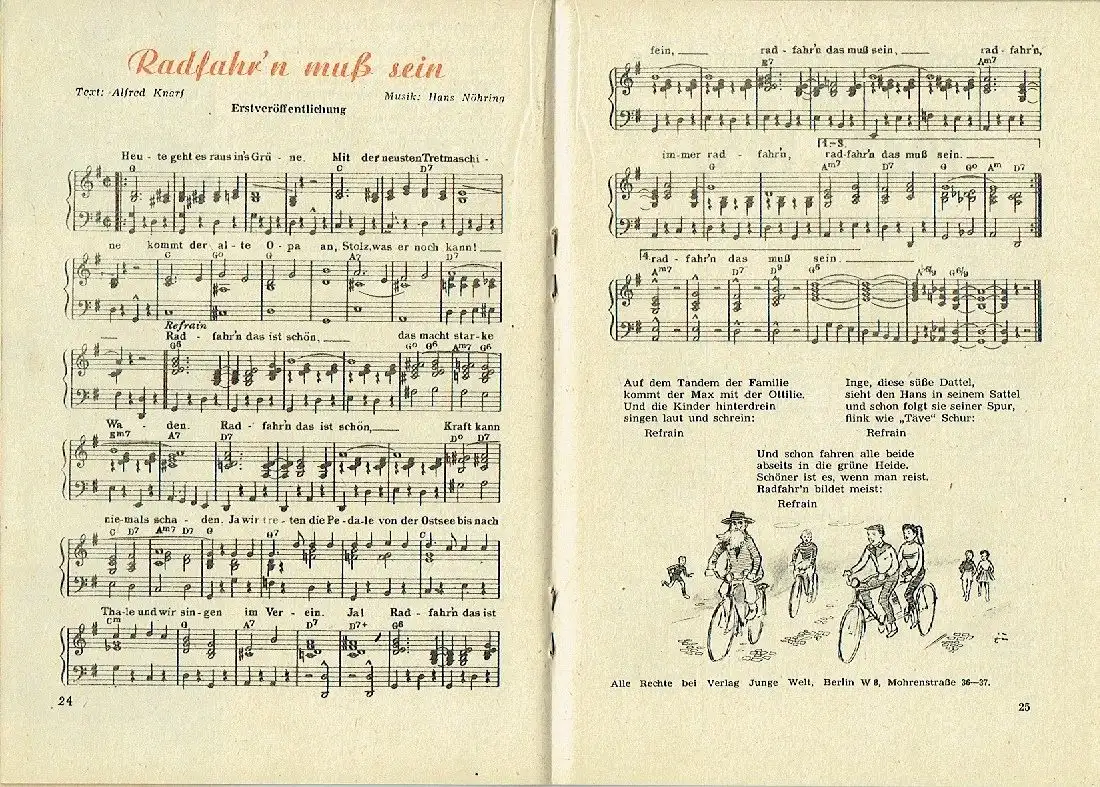 Radfahr'n muß sein
Text: Alfred Knerf
Musik: Hans Nöhring
Erstveröffentlichung
Heu - te geht es raus in's Grü - ne. Mit der neusten Tretmaschi -
G C D7
ne kommt der al - te O - pa an, Stolz, was er noch kann!
C G0 G A7 D7
Refrain
Rad - fahr'n das ist schön, das macht star-ke
G6 G0 G6 Am7 G6
Wa - den. Rad - fahr'n das ist schön, Kraft kann
Em7 A7 D7 D0 D7
nie-mals scha - den. Ja wir tre - ten die Pe - da-le von der Ostsee bis nach
C D7 Am7 D7 G G7 C
Tha-le und wir sin-gen im Ver - ein. Ja! Rad - fahr'n das ist
Cm G A7 D7 D7+ G6
24
fein, rad - fahr'n das muß sein, rad - fahr'n,
E7 Am7
1.-3.
im-mer rad - fahr'n, rad-fahr'n das muß sein.
G Am7 D7 G G0 Am D7
4. rad - fahr'n das muß sein.
Am7 D7 D9 G6 A6/9 G6/9
Auf dem Tandem der Familie
kommt der Max mit der Ottilie.
Und die Kinder hinterdrein
singen laut und schrein:
Refrain
Inge, diese süße Dattel,
sieht den Hans in seinem Sattel
und schon folgt sie seiner Spur,
flink wie „Täve“ Schur:
Refrain
Und schon fahren alle beide
abseits in die grüne Heide.
Schöner ist es, wenn man reist.
Radfahr'n bildet meist:
Refrain
Alle Rechte bei Verlag Junge Welt, Berlin W 8, Mohrenstraße 36—37.
25